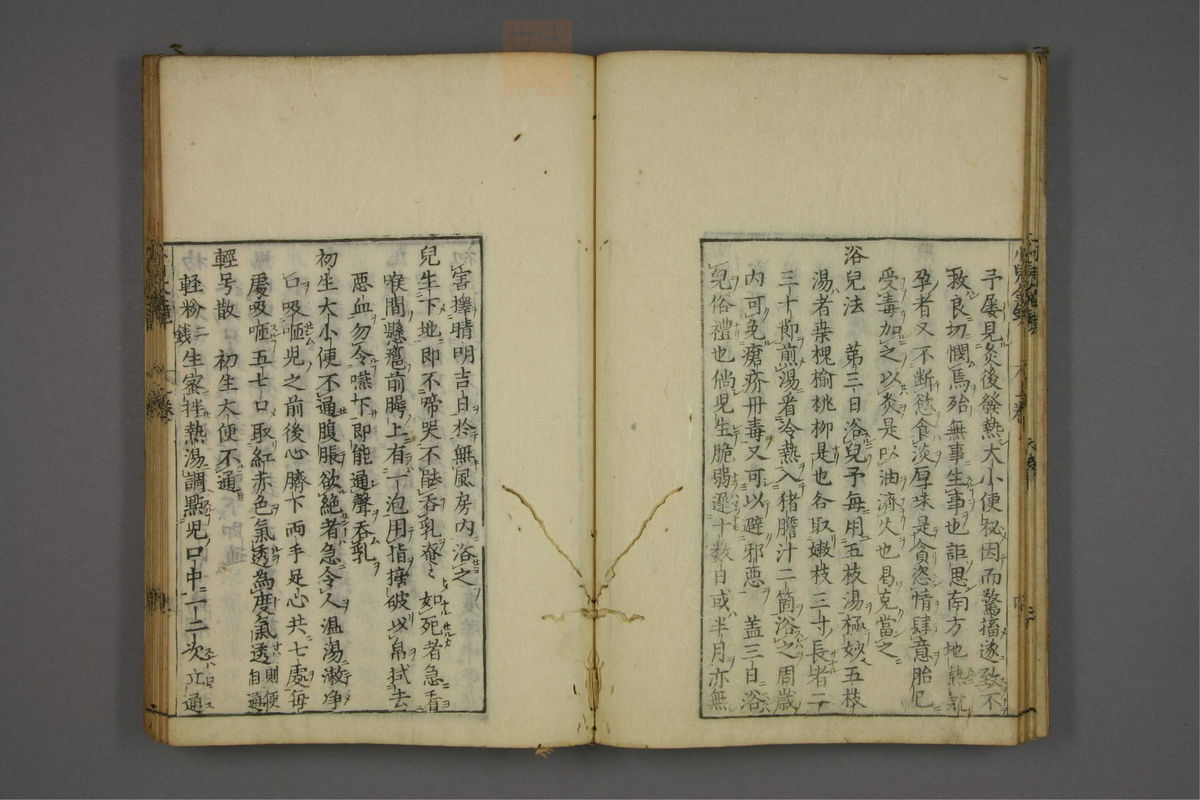 子屡見灸後發熱大小便秘因而驚搐遂致不
救良切憫焉殆無事生事也詎思南方地熱
孕者又不断慾食淡厚味是貪恣情肆意胎已
受毒加之以灸是以油濟火也曷克當之
浴兒法 苐三日浴兒予每用五枝湯極妙五枝
湯者桒槐榆桃柳是也各取嫩枝三寸長者二
三十節煎湯看冷熱入猪膽汁二箇浴之周歳
内可免瘡疥丹毒又可以避邪惡 盖三日浴
兒俗禮也倘児生脆弱遲十数日或半月亦無
害擇晴明吉日於無風房内浴之
兒生下地即不啼哭不能呑乳奄〻如死者急看
喉間懸雍前腭上有一泡用指搯破以帛拭去
惡血勿令嚥下即能通聲呑乳
初生大小便不通腹脹欲絶者急令人温湯漱净
口吸咂児之前後心臍下両手足心共七處毎
處吸咂五七口取紅赤色氣透為度氣透則便自通
輕号散 初生大便不通
輕粉二錢生蜜拌熱湯調點児口中一二次立通